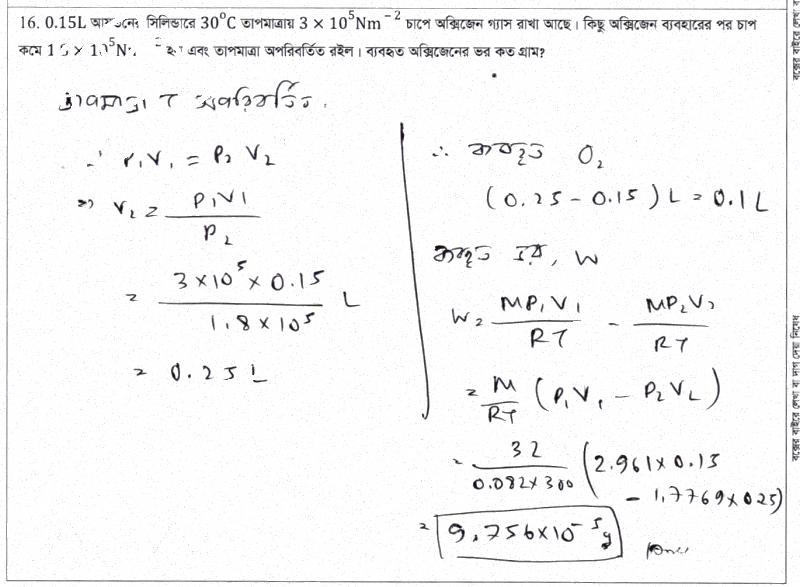 16. 0.15L আয়তনের সিলিন্ডারে 30°C তাপমাত্রায় 3 × 10⁵Nm⁻² চাপে অক্সিজেন গ্যাস রাখা আছে। কিছু অক্সিজেন ব্যবহারের পর চাপ
কমে × 10⁵N এবং তাপমাত্রা অপরিবর্তিত রইল। ব্যবহৃত অক্সিজেনের ভর কত গ্রাম?
তাপমাত্রা T অপরিবর্তিত.
∴ P₁V₁ = P₂ V₂
⇒ V₂ = P₁V₁ / P₂
= 3×10⁵ × 0.15 / 1.8 × 10⁵ L
= 0.25 L
∴ ব্যবহৃত O₂
(0.25 - 0.15) L = 0.1 L
ব্যবহৃত ভর, W
W = MP₁V₁ / RT - MP₂V₂ / RT
= M / RT (P₁V₁ - P₂V₂)
= 32 / 0.082×300 (2.961×0.15
- 1.7769×0.25)
= 9.756×10⁻⁵g
বাক্সের বাইরে লেখা যা দাগ দেয়া নিষেধ